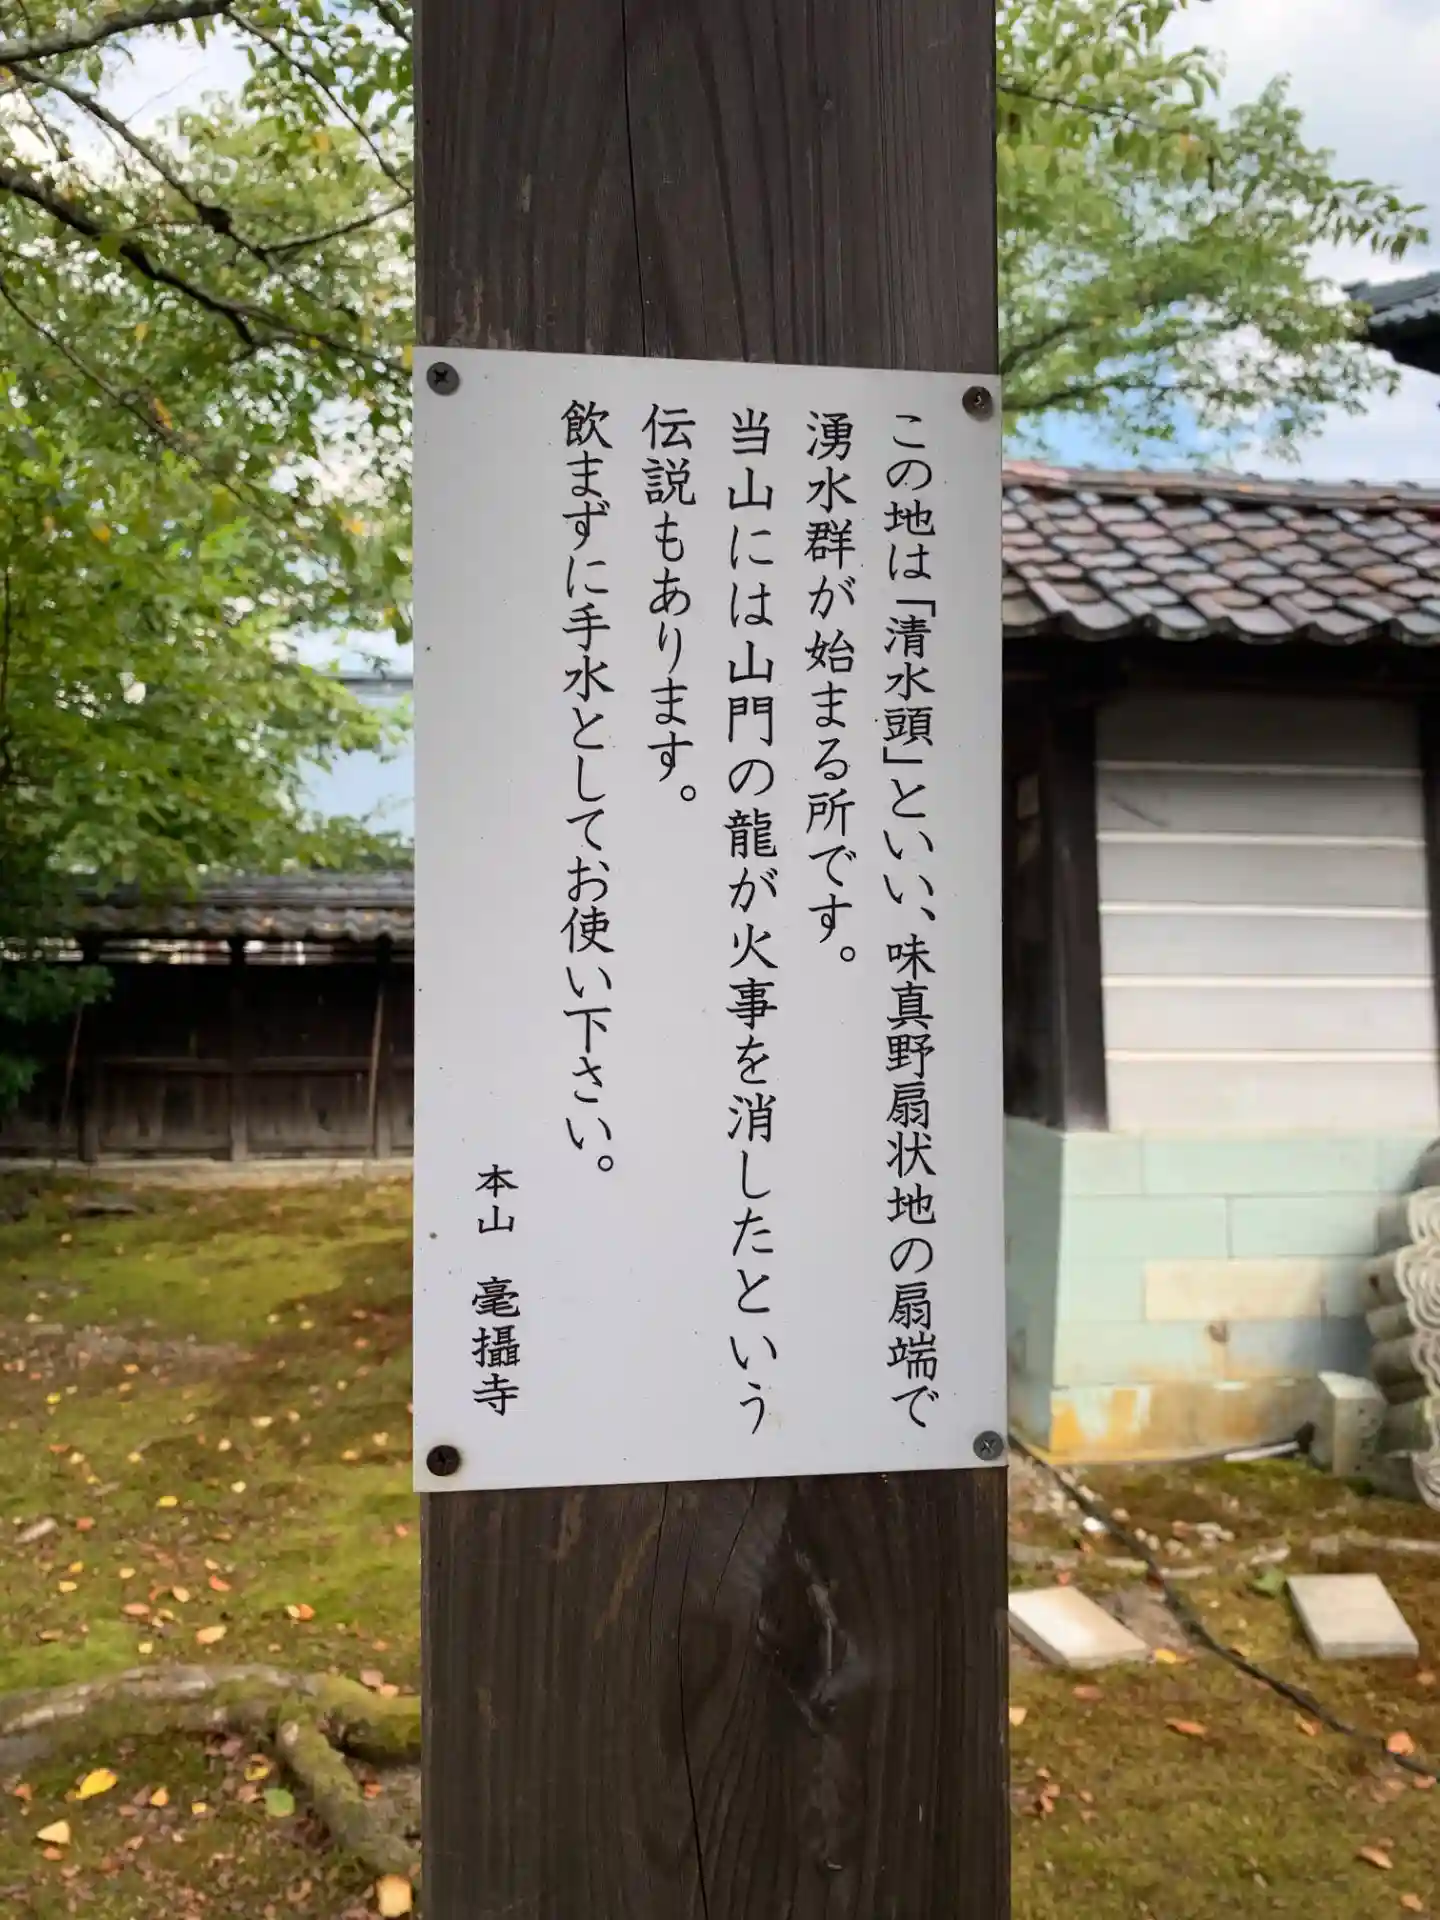 この地は「清水頭」といい、味真野扇状地の扇端で
湧水群が始まる所です。
当山には山門の龍が火事を消したという
伝説もあります。
飲まずに手水としてお使い下さい。
本山　毫攝寺